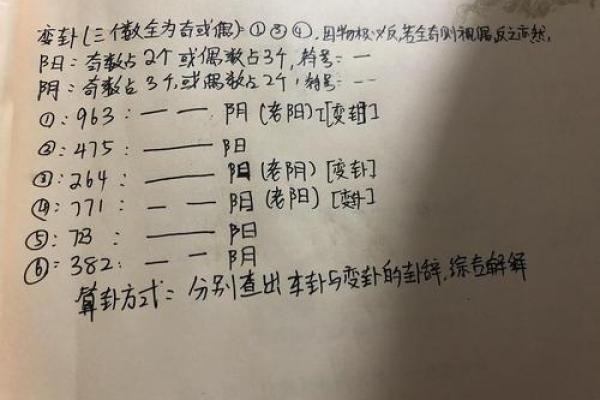 变卦(三个数全为奇或偶)=①③④,因物极必反,若全奇则视偶,反之亦然,
阳:奇数占2个或偶数占3个,符号:—
阴:奇数占3个,或偶数占2个,符号:--
①:963: — — 阴(老阳)[变卦]
②:475: —— 阳
③:264: —— 阳(老阴)[变卦]
④:771: — — 阴(老阳)[变卦]
⑤:723: —— 阳
⑥:382: — — 阴
算卦方式:分别查出本卦与变卦的卦辞,综考解解